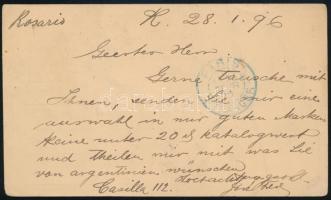 Rosario
R. 28.1.96
Geerter Herr
Gerne tausche mit
Ihnen, senden Sie mir eine
auswahl in nur guten Marken
keine unter 20 S katalogwert
und theilen mir mit was Sie
von argentinien wünschen
Hochachtungsvoll
Casilla 112.